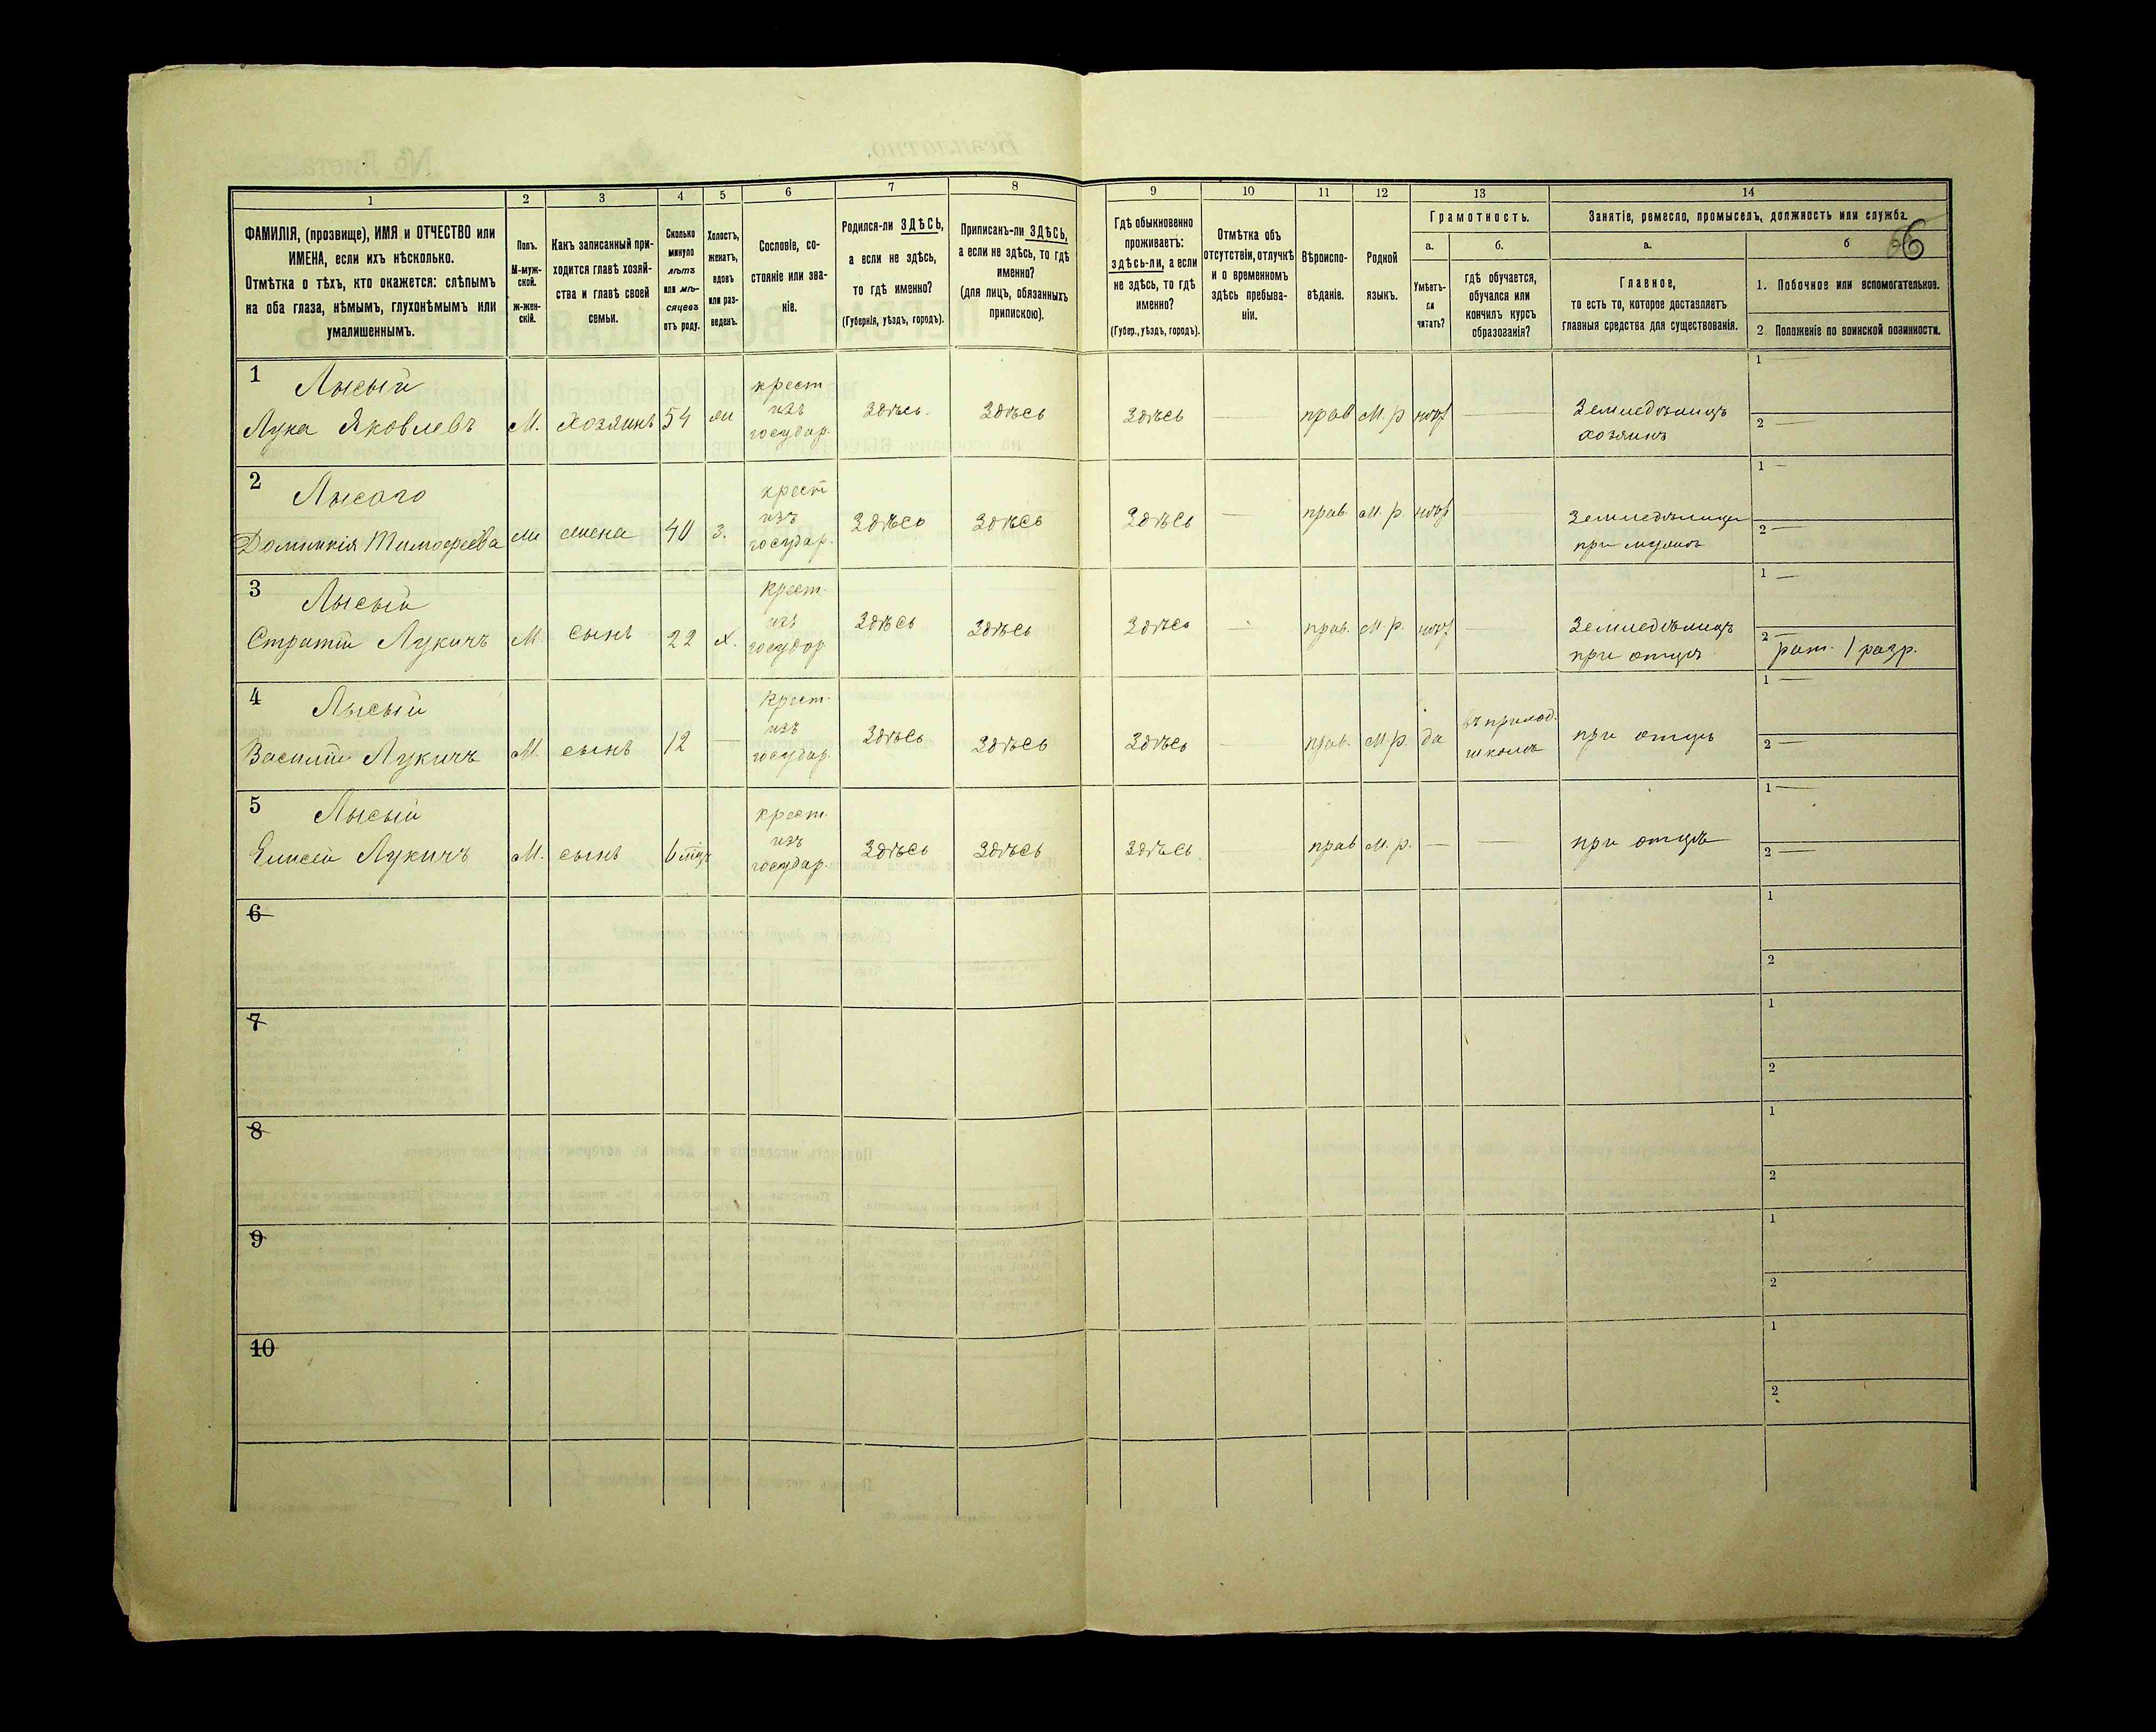 1 2 3 4 5 6 7 8 9 10 11 12 13 14
ФАМИЛІЯ, (прозвище), ИМЯ и ОТЧЕСТВО или
ИМЕНА, если ихъ нѣсколько.
Отмѣтка о тѣхъ, кто окажется: слѣпымъ
на оба глаза, нѣмымъ, глухонѣмымъ или
умалишеннымъ.
Полъ.
М-муж-
ской.
ж-жен-
скій.
Какъ записанный при-
ходится главѣ хозяй-
ства и главѣ своей
семьи.
Сколько
минуло
лѣтъ
или мѣ-
сяцевъ
отъ роду.
Холостъ,
женатъ,
вдовъ
или раз-
веденъ.
Сословіе, со-
стояніе или зва-
ніе.
Родился-ли ЗДѢСЬ,
а если не здѣсь,
то гдѣ именно?
(Губернія, уѣздъ, городъ).
Приписанъ-ли ЗДѢСЬ,
а если не здѣсь, то гдѣ
именно?
(для лицъ, обязанныхъ
припискою).
Гдѣ обыкновенно
проживаетъ:
здѣсь-ли, а если
не здѣсь, то гдѣ
именно?
(Губер., уѣздъ, городъ).
Отмѣтка объ
отсутствіи, отлучкѣ
и о временномъ
здѣсь пребыва-
ніи.
Вѣроиспо-
вѣданіе.
Родной
языкъ.
Грамотность.
а.
Умѣетъ-
ли
читать?
б.
гдѣ обучается,
обучался или
кончилъ курсъ
образованія?
Занятіе, ремесло, промыселъ, должность или служба.
а.
Главное,
то есть то, которое доставляетъ
главныя средства для существованія.
б
6
1. Побочное или вспомогательное.
2 Положеніе по воинской повинности.
1 Лысый
Лука Яковлевъ М. хозяинъ 54
крест
изъ
государ.
Здѣсь. Здѣсь Здѣсь прав М. р
Земледѣлецъ
хозяинъ
1
2
2 Лысаго
Домникія Тимофеева жена 40 з.
крест
изъ
государ.
Здѣсь Здѣсь Здѣсь прав. М. р.
при мужѣ
1
2
3 Лысый
Стратій Лукичъ М. сынъ 22 х.
крест.
изъ
государ
Здѣсь Здѣсь Здѣсь прав. М. р.
Земледѣлецъ
при отцѣ
1
2 рат. 1 разр.
4 Лысый
Василій Лукичъ М. сынъ 12
крест.
изъ
государ.
Здѣсь Здѣсь Здѣсь прав. М. р. да
въ приход.
школѣ
при отцѣ
1
2
5 Лысый
Елисей Лукичъ М. сынъ 6 мѣс
крест.
изъ
государ.
Здѣсь Здѣсь Здѣсь прав М. р.
при отцѣ
1
2
6
1
2
7
1
2
8
1
2
9
1
2
10
1
2